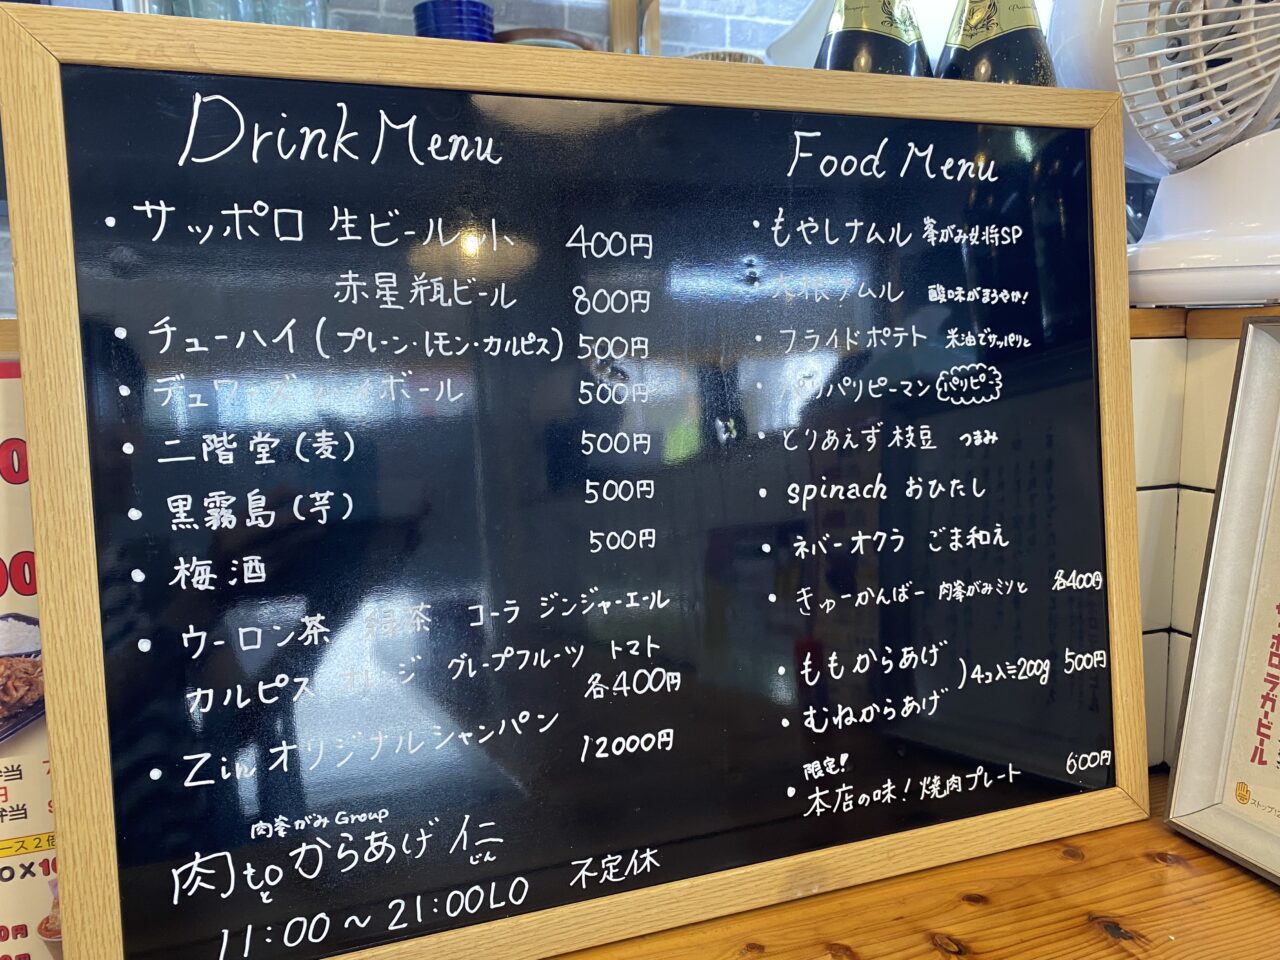 Drink Menu
・サッポロ 生ビール 小 400円
赤星瓶ビール 800円
・チューハイ(プレーン・レモン・カルピス) 500円
・デュワーズハイボール 500円
・二階堂(麦) 500円
・黒霧島(芋) 500円
・梅酒 500円
・ウーロン茶 緑茶 コーラ ジンジャーエール
カルピス オレンジ グレープフルーツ トマト
各400円
・Zin オリジナルシャンパン 12000円
肉峯がみGroup
肉toからあげ 仁
と じん
11:00～21:00LO 不定休
Food Menu
・もやしナムル 峯がみ女将SP
・大根ナムル 酸味がまろやか!
・フライドポテト 米油でサッパリと
・パリパリピーマン パリピー
・とりあえず枝豆 つまみ
・spinach おひたし
・ネバーオクラ ごま和え
・きゅーかんばー 肉峯がみミソと 各400円
・ももからあげ
・むねからあげ
)4コ入≒200g 500円
限定!
・本店の味!焼肉プレート 600円
サッポロラガービール
弁当
円
弁当